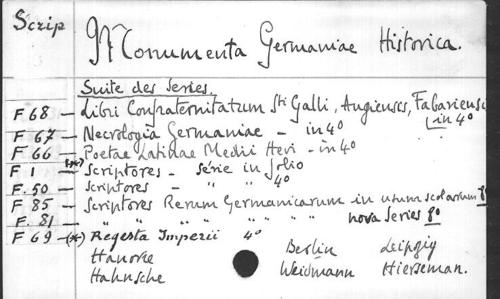 Scrip
Monumenta Germaniae Historica.
Suite des Series.
F 68 — Libri Confraternitatum Sti Galli, Augienses, Fabariensi
in 4º
F 67 — Necrologia Germaniae — in 4º
F 66 — Poetae Latinae Medii Aevi — in 4º
F 1 — (*) Scriptores — série in folio
F. 50 — Scriptores — " " 4º
F 85 — Scriptores Rerum Germanicarum in usum scolarum 8º
F. 81 " " " " " " " nova series 8º
F 69 — (*) Regesta Imperii 4º
Hanovre Berlin Leipzig
Hahnsche Weidmann Hierseman.